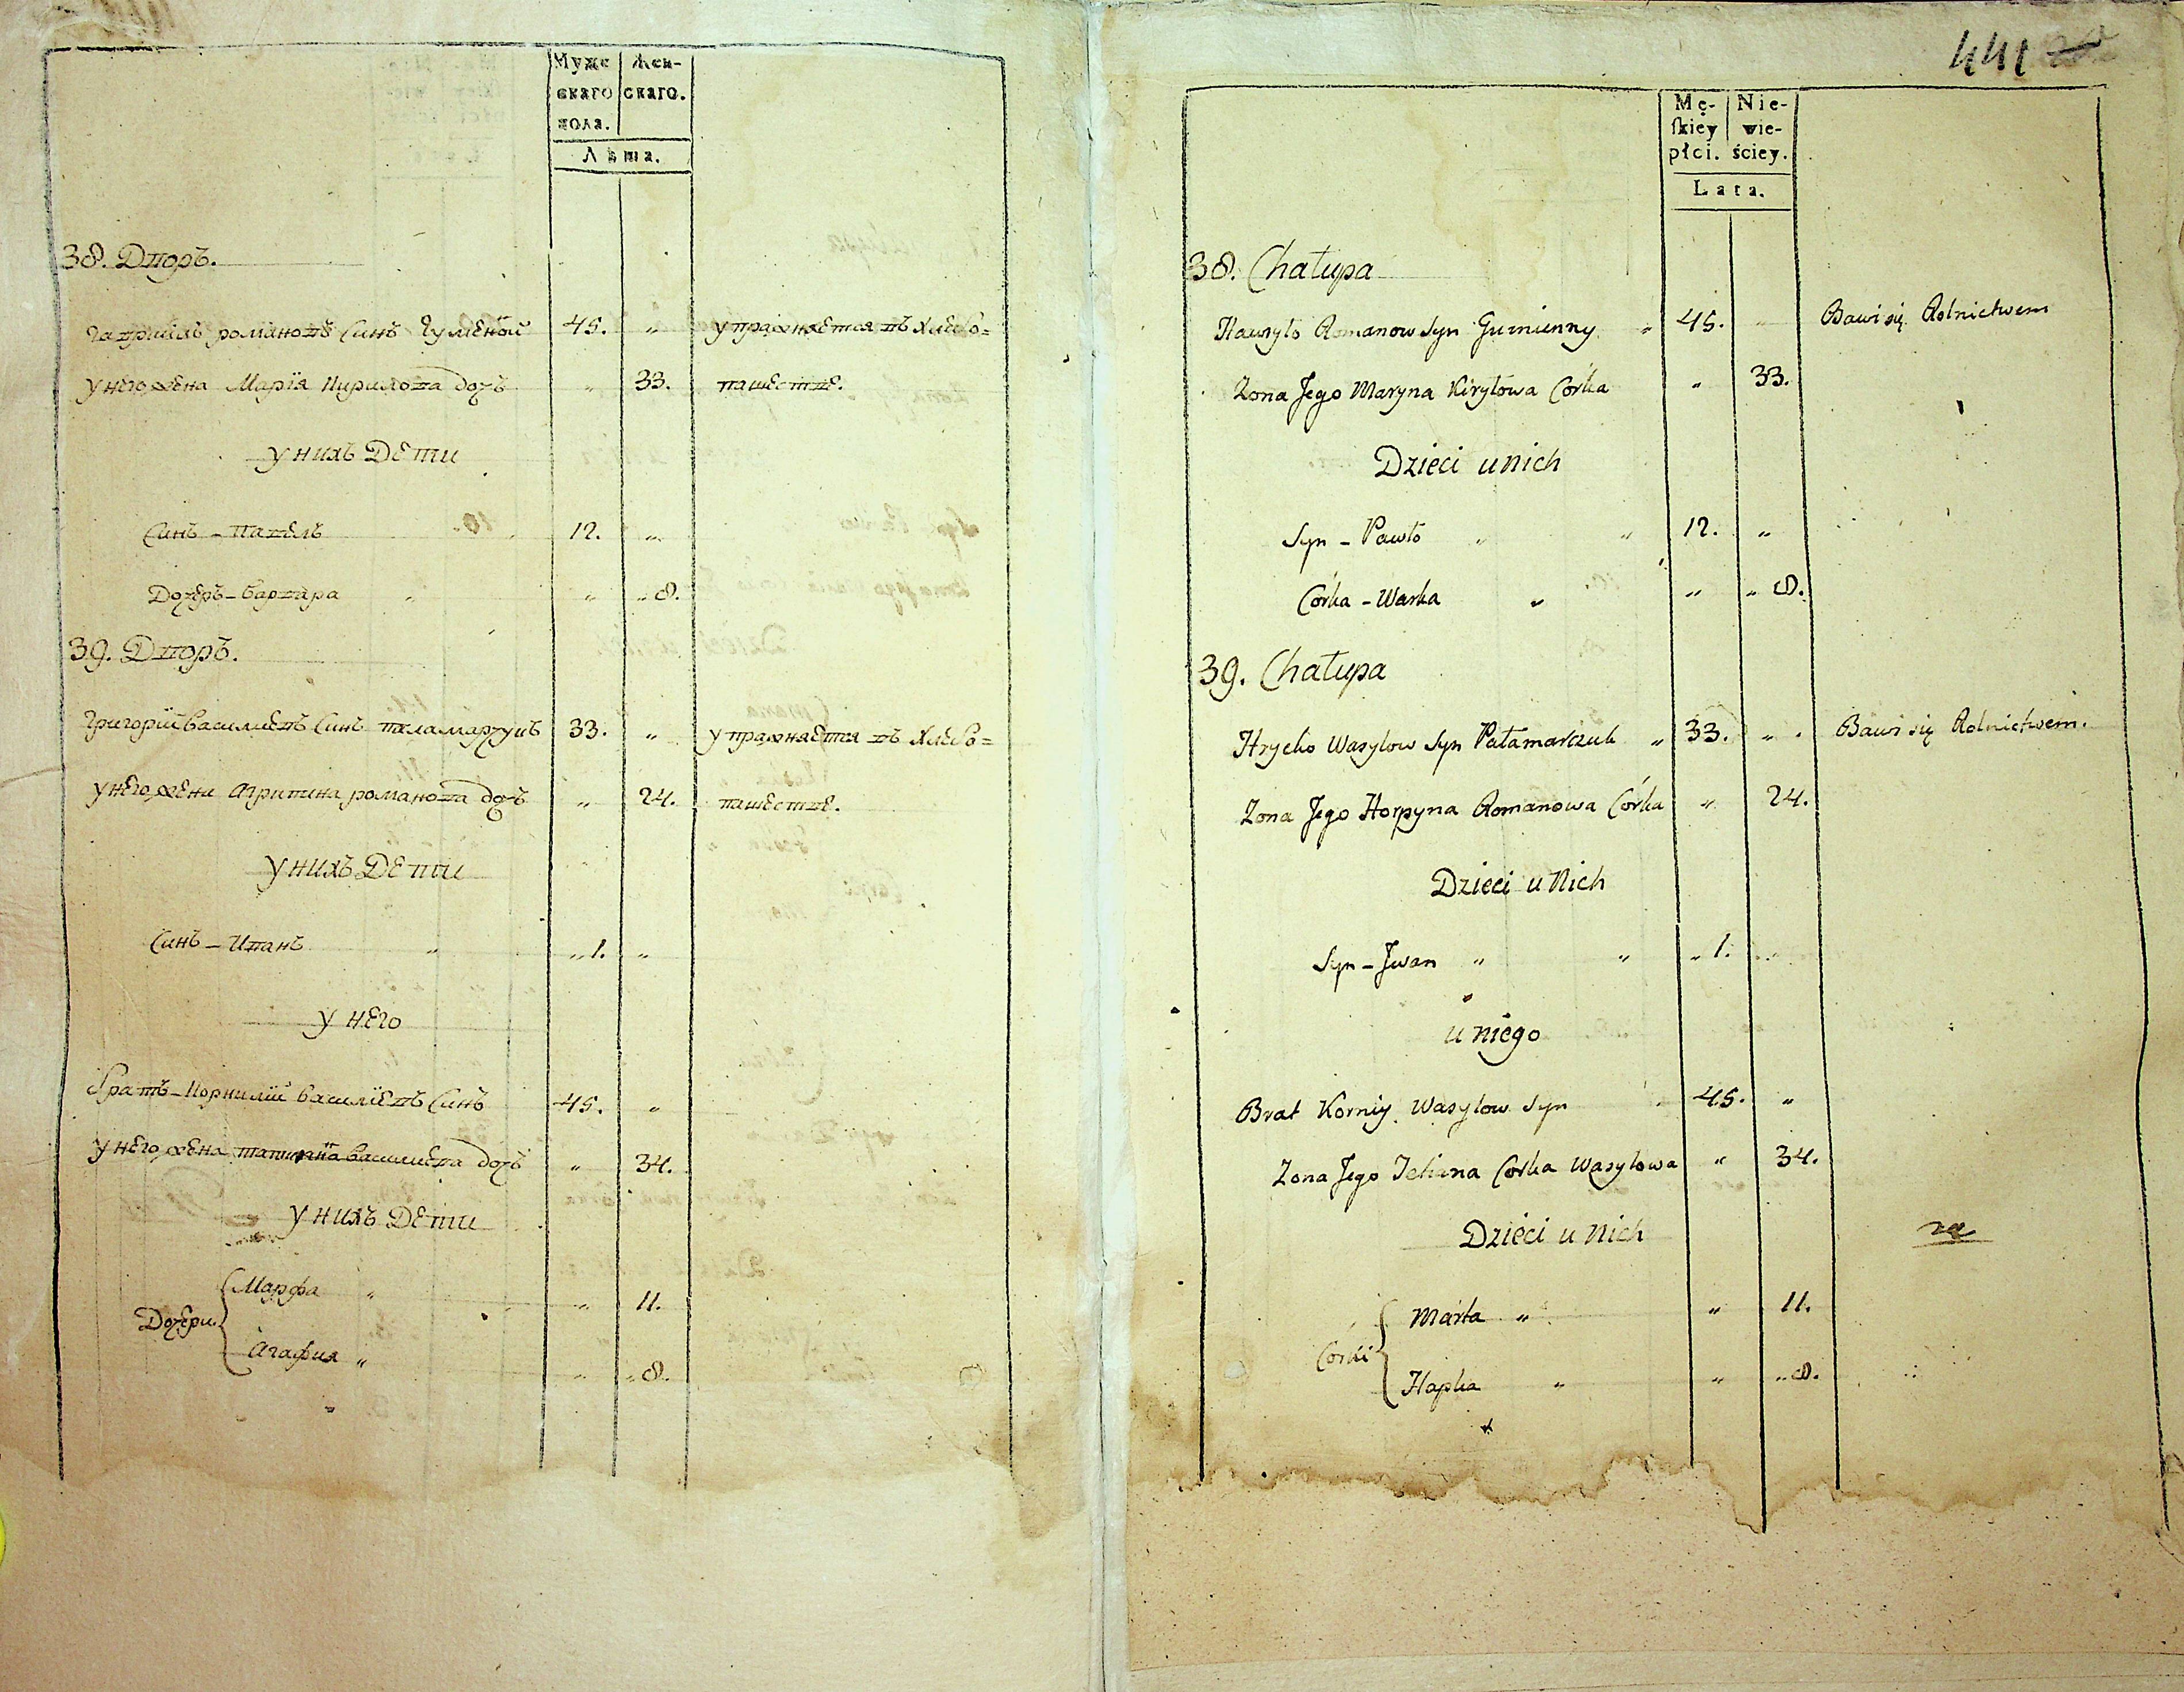 Муже Жен-
скаго скаго.
пола.
Лѣта.
38. Дворъ.
Гаврiилъ романовъ Синъ Гуменой 45. „ упражняется въ хлебо=
у него жена Марïя Кирилова дочъ „ 33. пашестве.
у нихъ Дети
Синъ - Павелъ 12. „
Дочеръ - варвара „ „ „ 8.
39. Дворъ.
Григорïй василиевъ Синъ паламарчукъ 33. „ упражняется въ хлебо=
у него жена Агрипина романова дочъ „ 24. пашестве.
у нихъ Дети
Синъ - Иванъ „ „ 1. „
у него
братъ - Корнилïй василïевъ Синъ 45. „
у него жена василиева дочъ „ 34.
у нихъ Дети
Дочери Марфа „ „ 11.
Агафия „ „ „ 8.
441
Mę- Nie-
skiey wie-
płci. ściey.
Lata.
38. Chałupa
Hawryło Romanow Syn Gumienny „ 45. „ Bawi się Rolnictwem
Zona Jego Maryna Kiryłowa Córka „ 33.
Dzieci u nich
Syn - Pawło „ „ 12. „
Córka - Warka „ „ „ 8.
39. Chałupa
Hryćko Wasylow Syn Pałamarczuk „ 33. „ Bawi się Rolnictwem.
Zona Jego Horpyna Romanowa Córka „ 24.
Dzieci u Nich
Syn - Jwan „ „ „ 1. „
u niego
Brat Korniy Wasylow Syn 45. „
Zona Jego Córka Wasylowa „ 34.
Dzieci u Nich
Córki Marta „ „ 11.
Hapka „ „ „ 8.